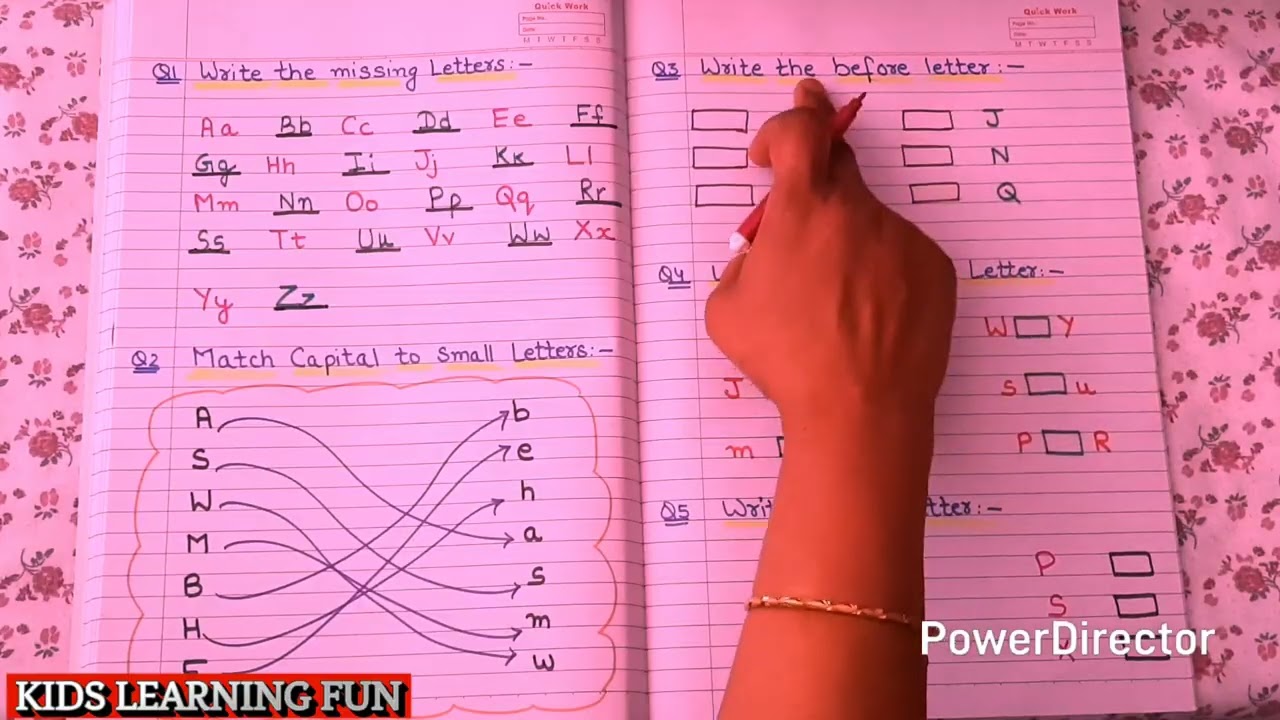 Quick Work
Page No.
Date:
M T W T F S S
Q1 Write the missing Letters:-
Aa Bb Cc Dd Ee Ff
Gg Hh Ii Jj Kk Ll
Mm Nn Oo Pp Qq Rr
Ss Tt Uu Vv Ww Xx
Yy Zz
Q2 Match Capital to Small Letters:-
A b
S e
W h
M a
B s
H m
w
KIDS LEARNING FUN
Quick Work
Page No.
Date:
M T W T F S S
Q3 Write the before letter:-
J
N
Q
Q4 Letter:-
W Y
J s u
m P R
Q5
P
S
PowerDirector